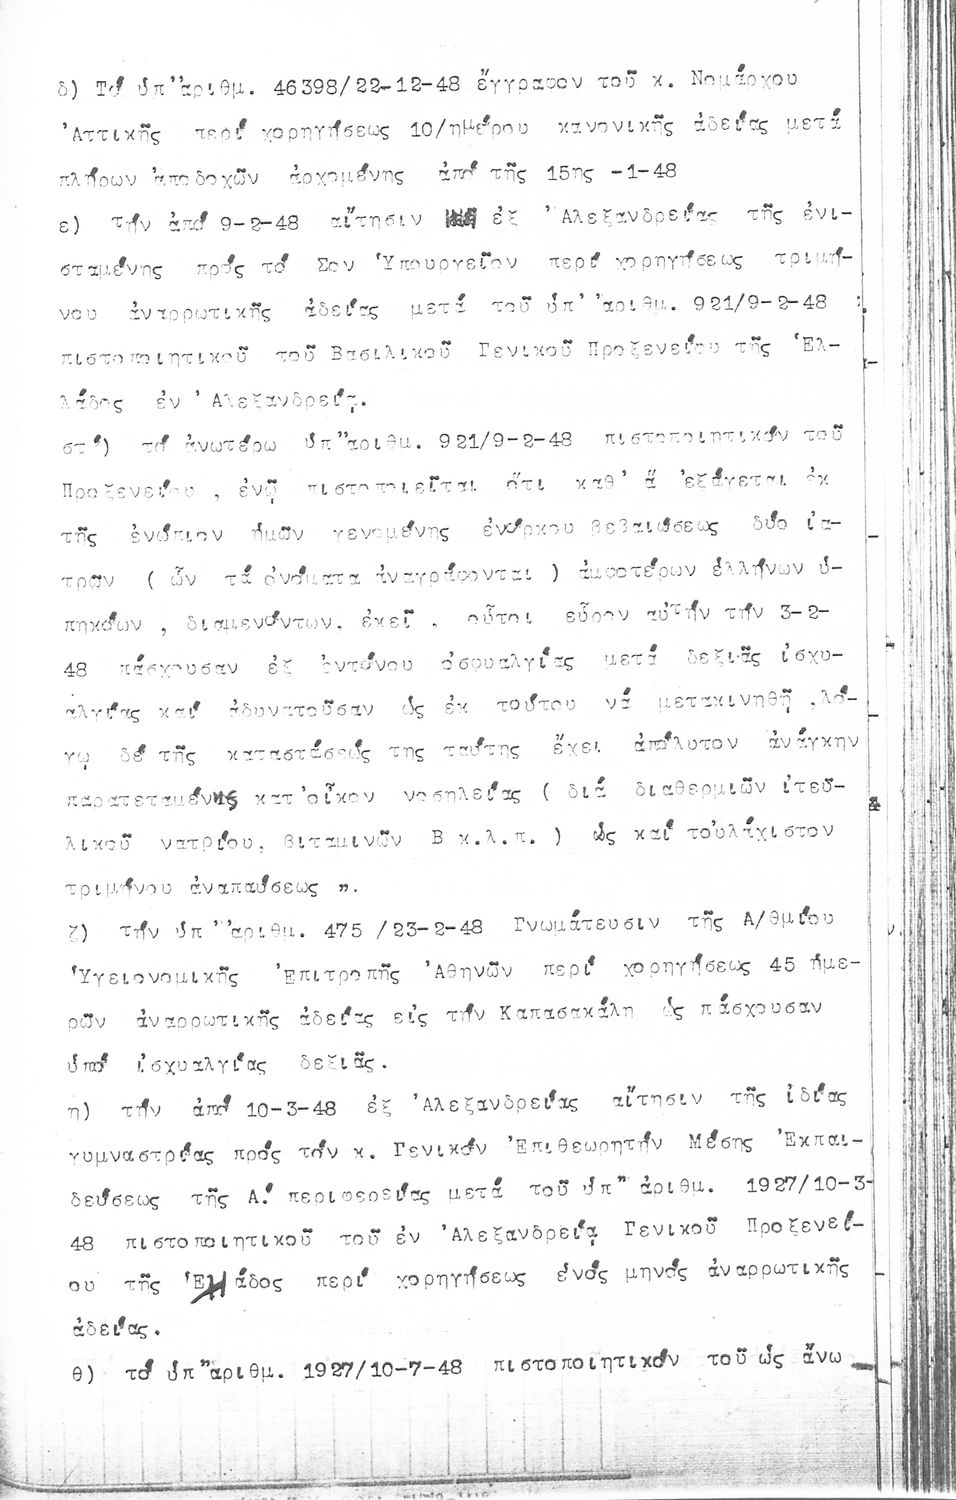 δ) Τό ὑπ' ἀριθμ. 46398/22-12-48 ἔγγραφον τοῦ κ. Νομάρχου
'Αττικῆς περί χορηγήσεως 10/ημέρου κανονικῆς ἀδείας μετά
πλήρων ἀποδοχῶν ἀρχομένης ἀπό τῆς 15ης -1-48
ε) τήν ἀπό 9-2-48 αἴτησιν ἐξ 'Αλεξανδρείας τῆς ἐνι-
σταμένης πρός τό Σον Ὑπουργεῖον περί χορηγήσεως τριμή-
νου ἀναρρωτικῆς ἀδείας μετά τοῦ ὑπ' ἀριθμ. 921/9-2-48
πιστοποιητικοῦ τοῦ Βασιλικοῦ Γενικοῦ Προξενείου τῆς Ἑλ-
λάδος ἐν 'Αλεξανδρείᾳ.
στ') τό ἀνωτέρω ὑπ" ἀριθμ. 921/9-2-48 πιστοποιητικόν τοῦ
Προξενείου , ἐνῷ πιστοποιεῖται ὅτι καθ' ἅ ἐξάγεται ἐκ
τῆς ἐνώπιον ἡμῶν γενομένης ἐνόρκου βεβαιώσεως δύο ἰα-
τρῶν ( ὧν τά ὀνόματα ἀναγράφονται ) ἀμφοτέρων ἑλλήνων ὑ-
πηκόων , διαμενόντων. ἐκεῖ . οὗτοι εὗρον αὐτήν τήν 3-2-
48 πάσχουσαν ἐξ ἐντόνου ὀσφυαλγίας μετά δεξιᾶς ἰσχυ-
αλγίας καί ἀδυνατοῦσαν ὡς ἐκ τούτου νά μετακινηθῇ ,λό-
γῳ δέ τῆς καταστάσεώς της ταύτης ἔχει ἀπόλυτον ἀνάγκην
παρατεταμένης κατ'οἶκον νοσηλείας ( διά διαθερμιῶν ἰτεϋ-
λικοῦ νατρίου, βιταμινῶν Β κ.λ.π. ) ὡς καί τοὐλάχιστον
τριμήνου ἀναπαύσεως ".
ζ) τήν ὑπ' ἀριθμ. 475 /23-2-48 Γνωμάτευσιν τῆς Α/θμίου
Ὑγειονομικῆς 'Επιτροπῆς 'Αθηνῶν περί χορηγήσεως 45 ἡμε-
ρῶν ἀναρρωτικῆς ἀδείας εἰς τήν Καπασακάλη ὡς πάσχουσαν
ὑπό ἰσχυαλγίας δεξιᾶς.
η) τήν ἀπό 10-3-48 ἐξ 'Αλεξανδρείας αἴτησιν τῆς ἰδίας
γυμναστρίας πρός τόν κ. Γενικόν 'Επιθεωρητήν Μέσης 'Εκπαι-
δεύσεως τῆς Α.' περιφερείας μετά τοῦ ὑπ" ἀριθμ. 1927/10-3-
48 πιστοποιητικοῦ τοῦ ἐν 'Αλεξανδρείᾳ Γενικοῦ Προξενεί-
ου τῆς Ἑλλάδος περί χορηγήσεως ἑνός μηνός ἀναρρωτικῆς
ἀδείας.
θ) τό ὑπ" ἀριθμ. 1927/10-7-48 πιστοποιητικόν τοῦ ὡς ἄνω